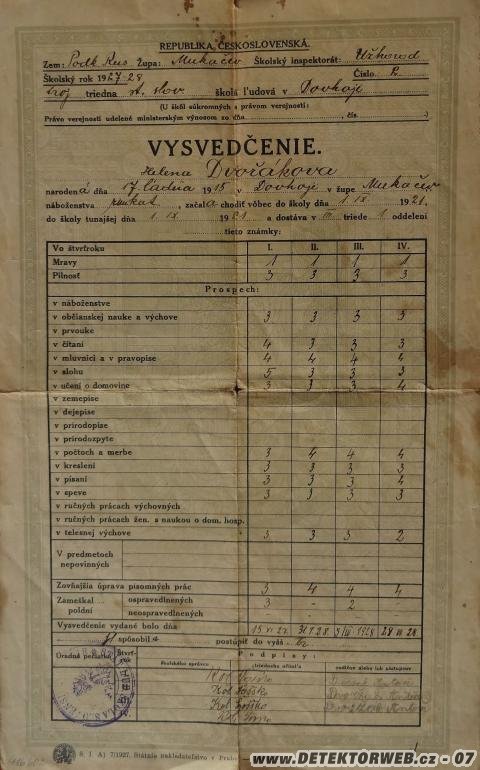 REPUBLIKA ČESKOSLOVENSKÁ.
Zem: Podk. Rus. Župa: Mukačev Školský inspektorát: Užhorod
Školský rok 1927-28 Číslo 2
troj triedna št. slov. škola ľudová v Dovhoje
(U škôl súkromných s právom verejnosti:
Právo verejnosti udelené ministerským výnosom zo dňa , čís. .)
VYSVEDČENIE.
Helena Dvořáková
narodená dňa 17 1915 v Dovhoje v župe Mukačev
náboženstva , začala chodiť vôbec do školy dňa 1 IX 1921,
do školy tunajšej dňa 1 IX 1921 a dostáva v III triede 1 oddelení
tieto známky:
Vo štvrťroku I. II. III. IV.
Mravy 1 1 1 1
Pilnosť 3 3 3 3
Prospech:
v náboženstve
v občianskej nauke a výchove 3 3 3 3
v prvouke
v čítaní 4 3 3 3
v mluvnici a v pravopise 4 4 4 4
v slohu 5 3 3 3
v učení o domovine 3 3 3 4
v zemepise
v dejepise
v prírodopise
v prírodozpyte
v počtoch a merbe 3 4 4 4
v kreslení 3 3 3 3
v písaní 3 3 3 4
v speve 3 3 3 3
v ručných prácach výchovných
v ručných prácach žen. s naukou o dom. hosp.
v telesnej výchove 3 3 3 2
V predmetoch nepovinných
Zovňajšia úprava písomných prác 3 4 4 4
Zameškal poldní ospravedlnených 3 - 2
neospravedlnených
Vysvedčenie vydané bolo dňa 31 I 28 3 III 1928 28 VI 28
spôsobil a postúpiť do vyš
Úradná pečiatka Štvrť- Podpisy:
školského správcu triedneho učiteľa rodičov alebo ich zástupcov
Š. I. A) 7/1927. Štátne nakladateľstvo v Prahe
www.DETEKTORWEB.cz - 07